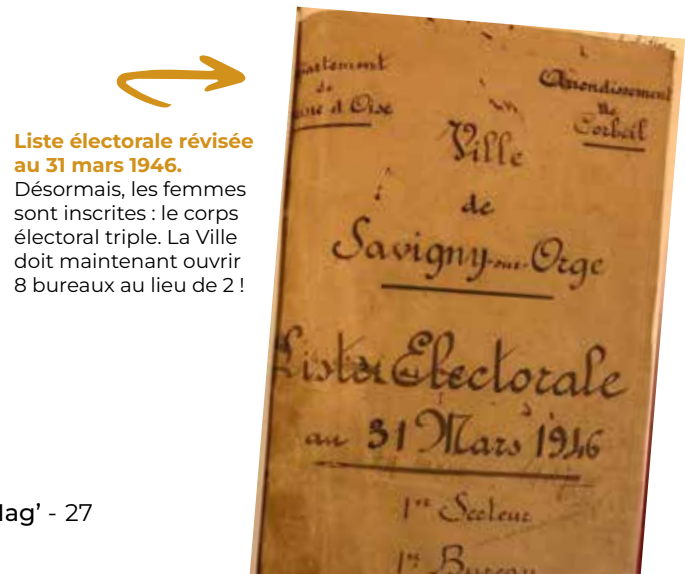 Liste électorale révisée
au 31 mars 1946.
Désormais, les femmes
sont inscrites : le corps
électoral triple. La Ville
doit maintenant ouvrir
8 bureaux au lieu de 2 !
de
d'Oise
Arrondissement
de
Corbeil
Ville
de
Savigny-sur-Orge
Liste Electorale
au 31 Mars 1946
1er Secteur
1er Bureau
- 27